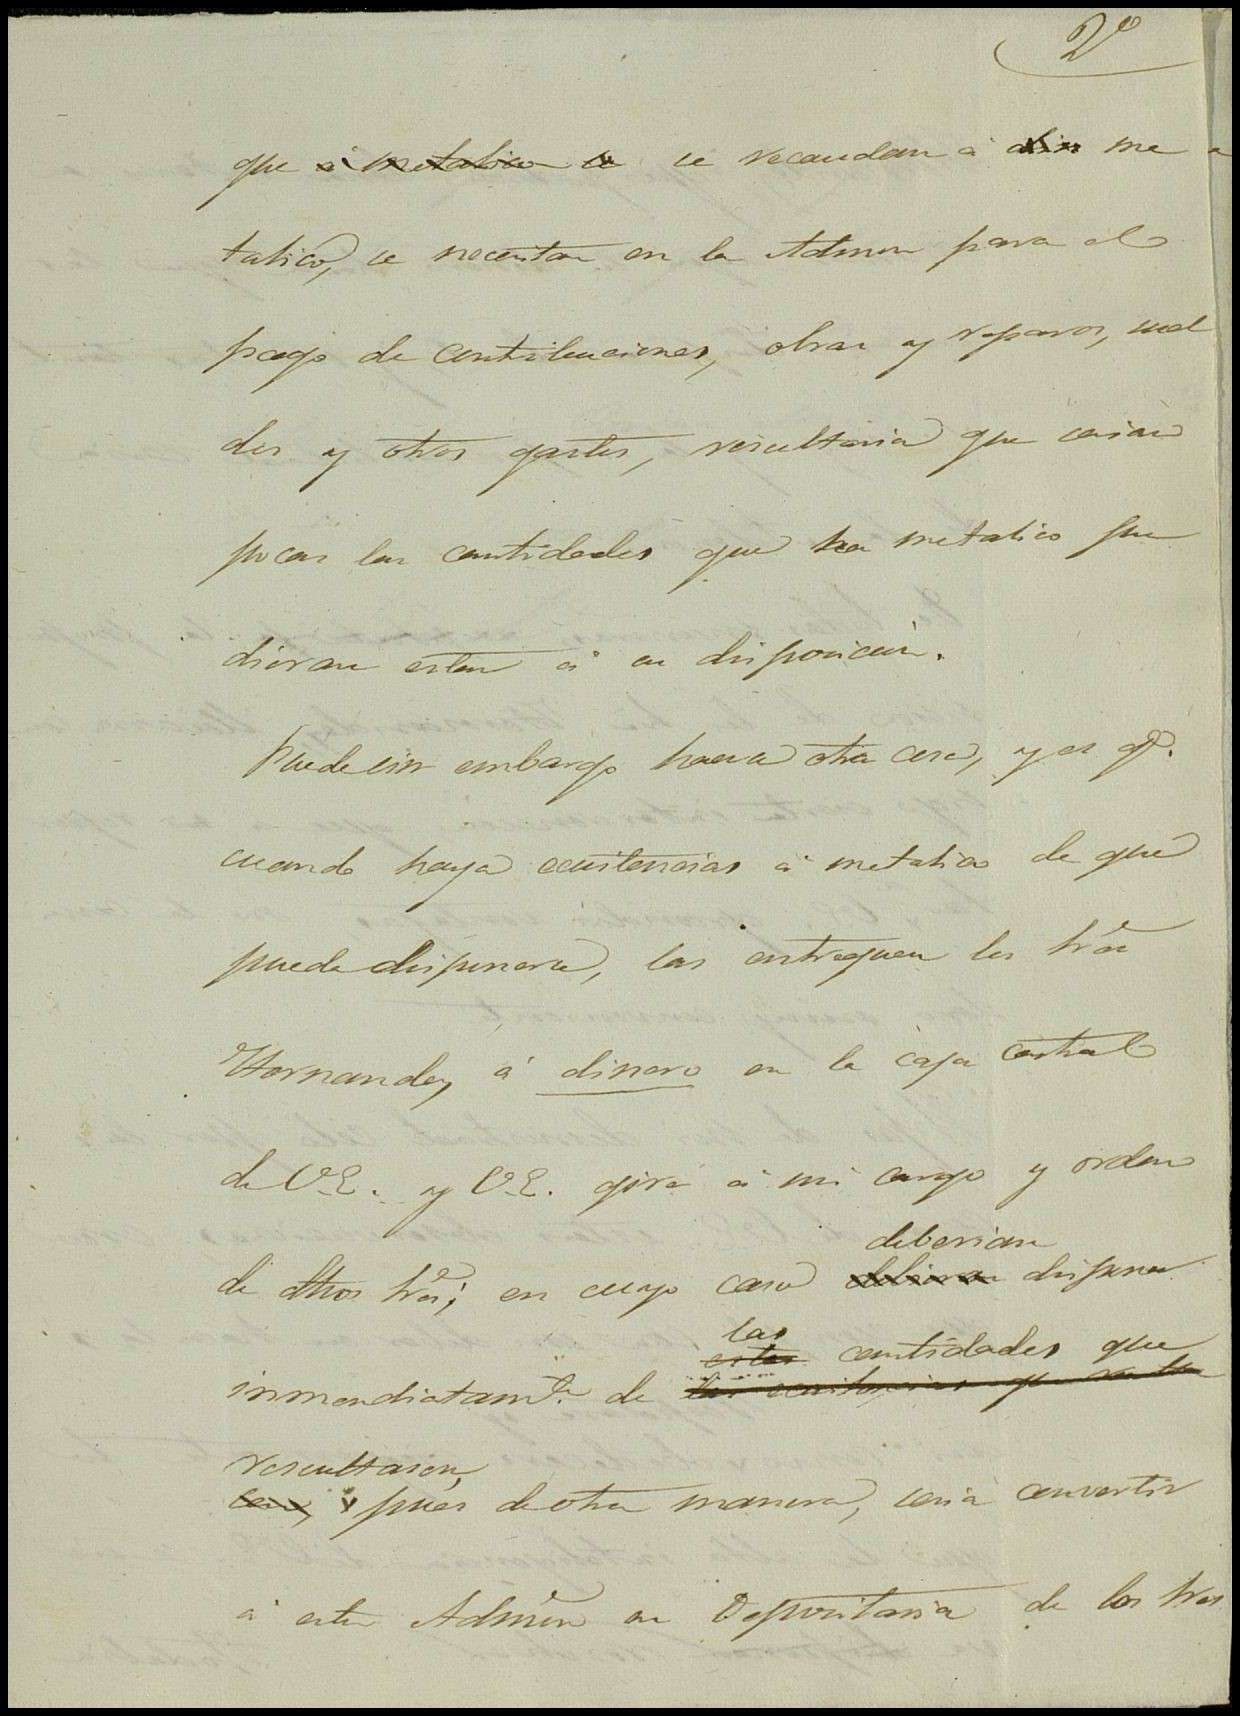 2º
que á metalico se se recaudan á me
talico, se necesitan en la Admon para el
pago de contribuciones, obras y reparos, suel
dos y otros gastos, resultaria que serian
pocas las cantidades que en metalico pu
dieran estar á su disposicion.
Puede sin embargo hacerse otra cosa, y es qe.
cuando haya existencias á metalico de que
pueda disponerse, las entreguen los Sres
Hernandez á dinero en la caja central
de V.E. y V.E. gire á mi cargo y orden
deberian
de dhos Sres; en cuyo caso disponer
las
estas cantidades que
inmendiatamte. de las existencias que
resultasen,
pues de otra manera, seria convertir
á esta Admon en Depositaria de los Sres